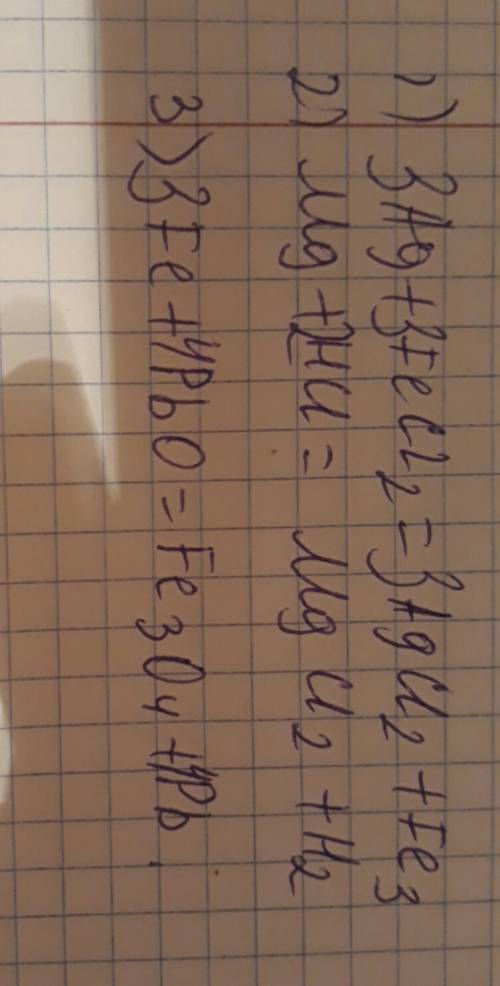 1) 3Ag+3FeCl2=3AgCl2+Fe3
2) Mg+2HCl= MgCl2+H2
3) 3Fe+4PbO=Fe3O4+4Pb.